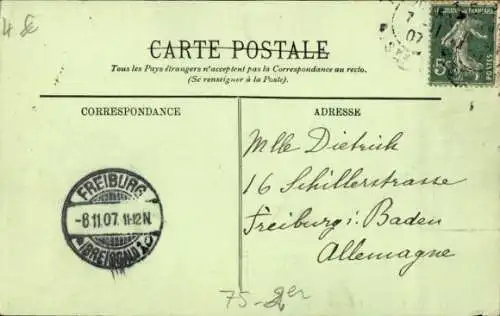 CARTE POSTALE
Tous les Pays étrangers n'acceptent pas la Correspondance au recto.
(Se renseigner à la Poste).
CORRESPONDANCE
ADRESSE
7
07
5c
POSTES
Mlle Dietrich
16 Schillerstrasse
Freiburg i. Baden
Allemagne
FREIBURG
-8.11.07. 11-12N.
(BREISGAU)
75-